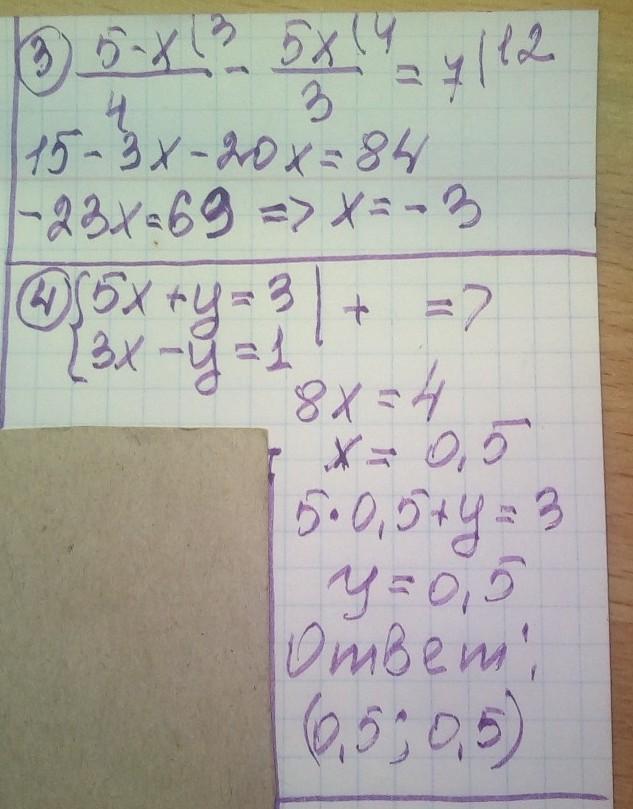 ③ (5-x)/4 (3 - 5x/3 (4 = 7 | 12
15 - 3x - 20x = 84
-23x = 69 => x = -3
④ { 5x + y = 3 | + =>
{ 3x - y = 1 |
8x = 4
x = 0,5
5·0,5 + y = 3
y = 0,5
Ответ:
(0,5; 0,5)